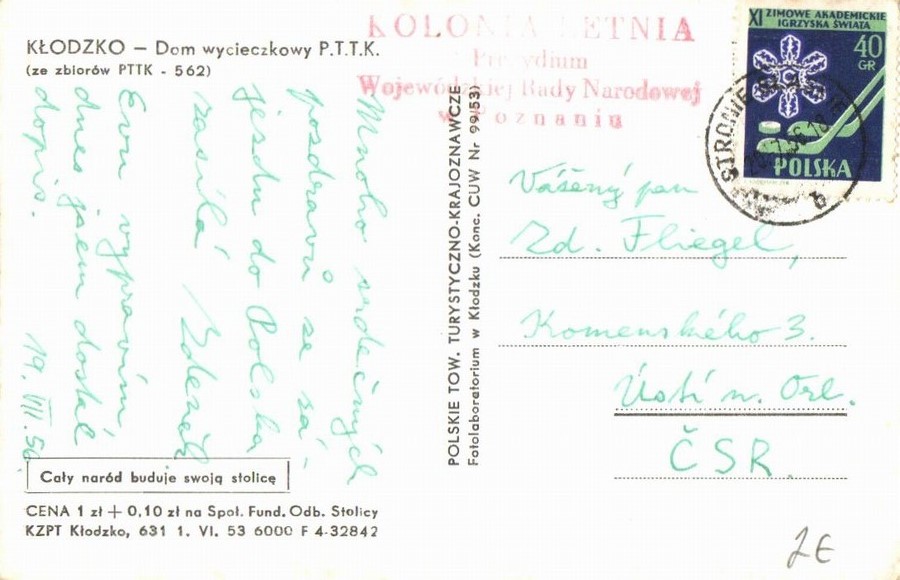 KŁODZKO — Dom wycieczkowy P.T.T.K.
(ze zbiorów PTTK - 562)
KOLONIA LETNIA
Prezydium
Wojewódzkiej Rady Narodowej
w Poznaniu
XI ZIMOWE AKADEMICKIE
IGRZYSKA ŚWIATA
40
GR
POLSKA
STRONIE
b
Mnoho srdečných
pozdravů ze zá-
jezdu do Polska
zasílá Zdeněk
Evu vypravím
dnes jsem dostal
dopis.
19. VII. 56
POLSKIE TOW. TURYSTYCZNO-KRAJOZNAWCZE
Fotolaboratorium w Kłodzku (Konc. CUW Nr 99/53)
Vážený pan
Zd. Fliegel,
Komenského 3.
Ústí n. Orl.
ČSR.
Cały naród buduje swoją stolicę
CENA 1 zł + 0,10 zł na Społ. Fund. Odb. Stolicy
KZPT Kłodzko, 631 1. VI. 53 6000 F 4-32842
2€